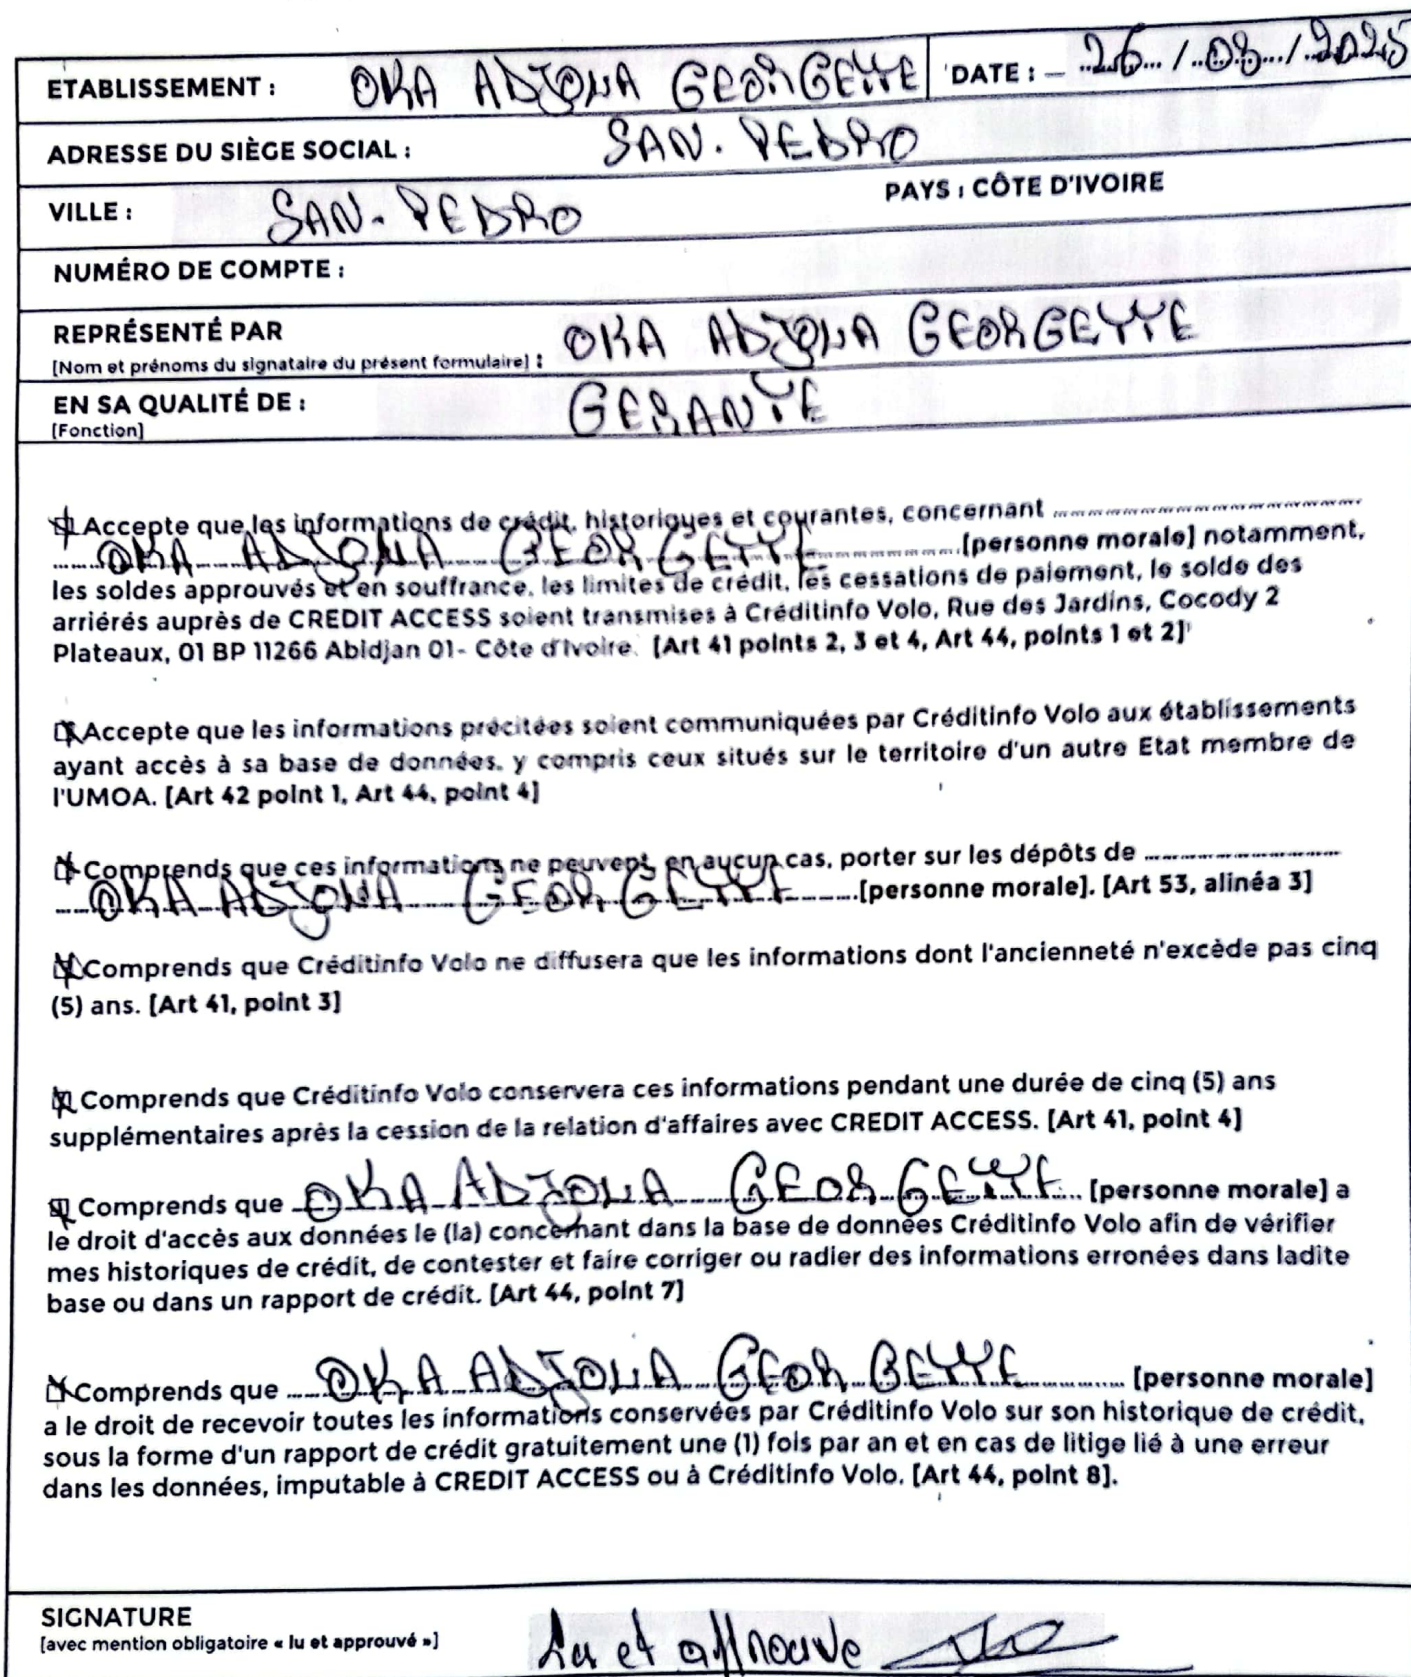 ETABLISSEMENT : OKA ADJOUA GEORGETTE DATE : 26 / 08 / 2025
ADRESSE DU SIÈGE SOCIAL : SAN. PEDRO
VILLE : SAN. PEDRO PAYS : CÔTE D'IVOIRE
NUMÉRO DE COMPTE :
REPRÉSENTÉ PAR OKA ADJOUA GEORGETTE
[Nom et prénoms du signataire du présent formulaire] :
EN SA QUALITÉ DE : GERANTE
[Fonction]
Accepte que les informations de crédit, historiques et courantes, concernant
OKA ADJOUA GEORGETTE [personne morale] notamment,
les soldes approuvés et en souffrance, les limites de crédit, les cessations de paiement, le solde des
arriérés auprès de CREDIT ACCESS soient transmises à Créditinfo Volo, Rue des Jardins, Cocody 2
Plateaux, 01 BP 11266 Abidjan 01- Côte d'Ivoire. [Art 41 points 2, 3 et 4, Art 44, points 1 et 2]
Accepte que les informations précitées soient communiquées par Créditinfo Volo aux établissements
ayant accès à sa base de données, y compris ceux situés sur le territoire d'un autre Etat membre de
l'UMOA. [Art 42 point 1, Art 44, point 4]
Comprends que ces informations ne peuvent, en aucun cas, porter sur les dépôts de
OKA ADJOUA GEORGETTE [personne morale]. [Art 53, alinéa 3]
Comprends que Créditinfo Volo ne diffusera que les informations dont l'ancienneté n'excède pas cinq
(5) ans. [Art 41, point 3]
Comprends que Créditinfo Volo conservera ces informations pendant une durée de cinq (5) ans
supplémentaires après la cession de la relation d'affaires avec CREDIT ACCESS. [Art 41, point 4]
Comprends que OKA ADJOUA GEORGETTE [personne morale] a
le droit d'accès aux données le (la) concernant dans la base de données Créditinfo Volo afin de vérifier
mes historiques de crédit, de contester et faire corriger ou radier des informations erronées dans ladite
base ou dans un rapport de crédit. [Art 44, point 7]
Comprends que OKA ADJOUA GEORGETTE [personne morale]
a le droit de recevoir toutes les informations conservées par Créditinfo Volo sur son historique de crédit,
sous la forme d'un rapport de crédit gratuitement une (1) fois par an et en cas de litige lié à une erreur
dans les données, imputable à CREDIT ACCESS ou à Créditinfo Volo. [Art 44, point 8].
SIGNATURE
[avec mention obligatoire « lu et approuvé »] Lu et approuve